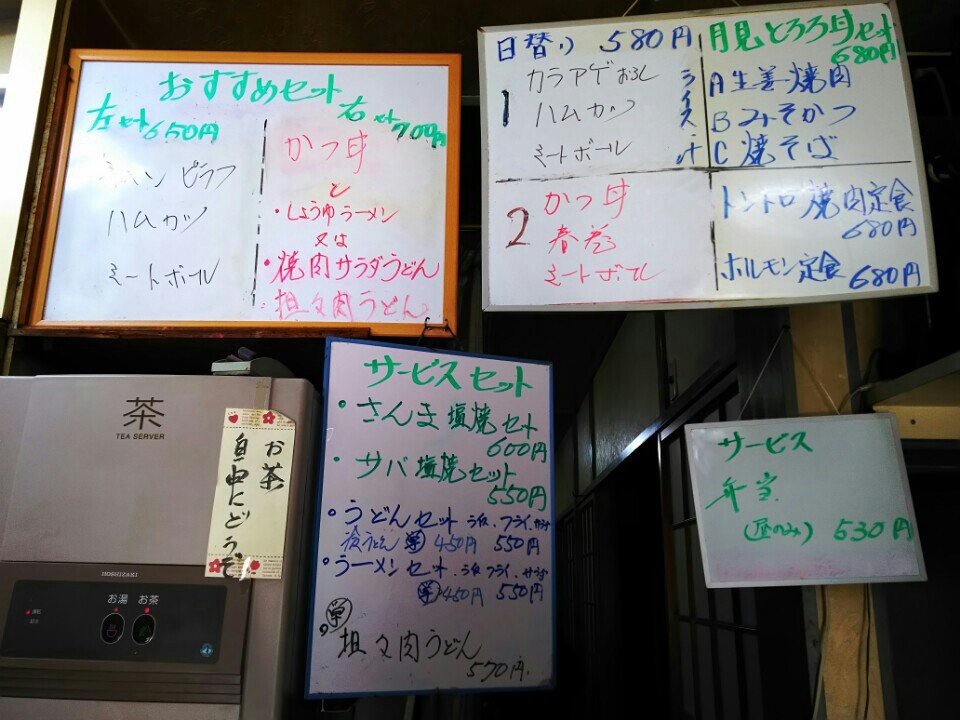 おすすめセット
左セット650円
右セット700円
ピラフ
ハムカツ
ミートボール
かつ丼
と
・しょうゆラーメン
又は
・焼肉サラダうどん
・担々肉うどん
日替り 580円
1
カラアゲおろし
ハムカツ
ミートボール
ライス
汁
2
かつ丼
春巻
ミートボール
月見とろろ丼セット
680円
A 生姜焼肉
B みそかつ
C 焼そば
トントロ焼肉定食
680円
ホルモン定食 680円
サービスセット
・さんま塩焼セット
600円
・サバ塩焼セット
550円
・うどんセット フライ
冷うどん 学 450円 550円
・ラーメンセット フライ
学 450円 550円
学
担々肉うどん
570円
サービス
弁当
(昼のみ) 530円
茶
TEA SERVER
お茶
自由にどうぞ
HOSHIZAKI
お湯 お茶